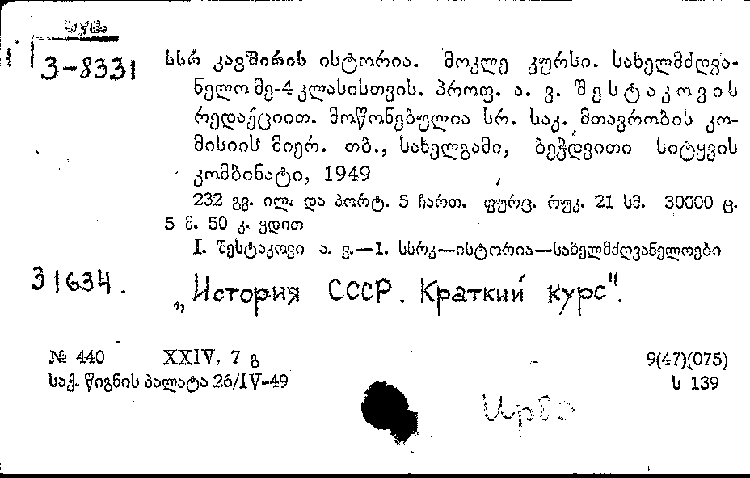 3-8331
სსრ კავშირის ისტორია. მოკლე კურსი. სახელმძღვა-
ნელო მე-4 კლასისთვის. პროფ. ა. ვ. შესტაკოვის
რედაქციით. მოწონებულია სრ. საკ. მთავრობის კო-
მისიის მიერ. თბ., სახელგამი, ბეჭდვითი სიტყვის
კომბინატი, 1949
232 გვ. ილ. და პორტ. 5 ჩართ. ფურც. რუკ. 21 სმ. 30000 ც.
5 მ. 50 კ. ყდით
I. შესტაკოვი ა. ვ.—1. სსრკ—ისტორია—სახელმძღვანელოები
31634.
„История СССР. Краткий курс".
№ 440 XXIV, 7 გ 9(47)(075)
საქ. წიგნის პალატა 26/IV-49 ს 139